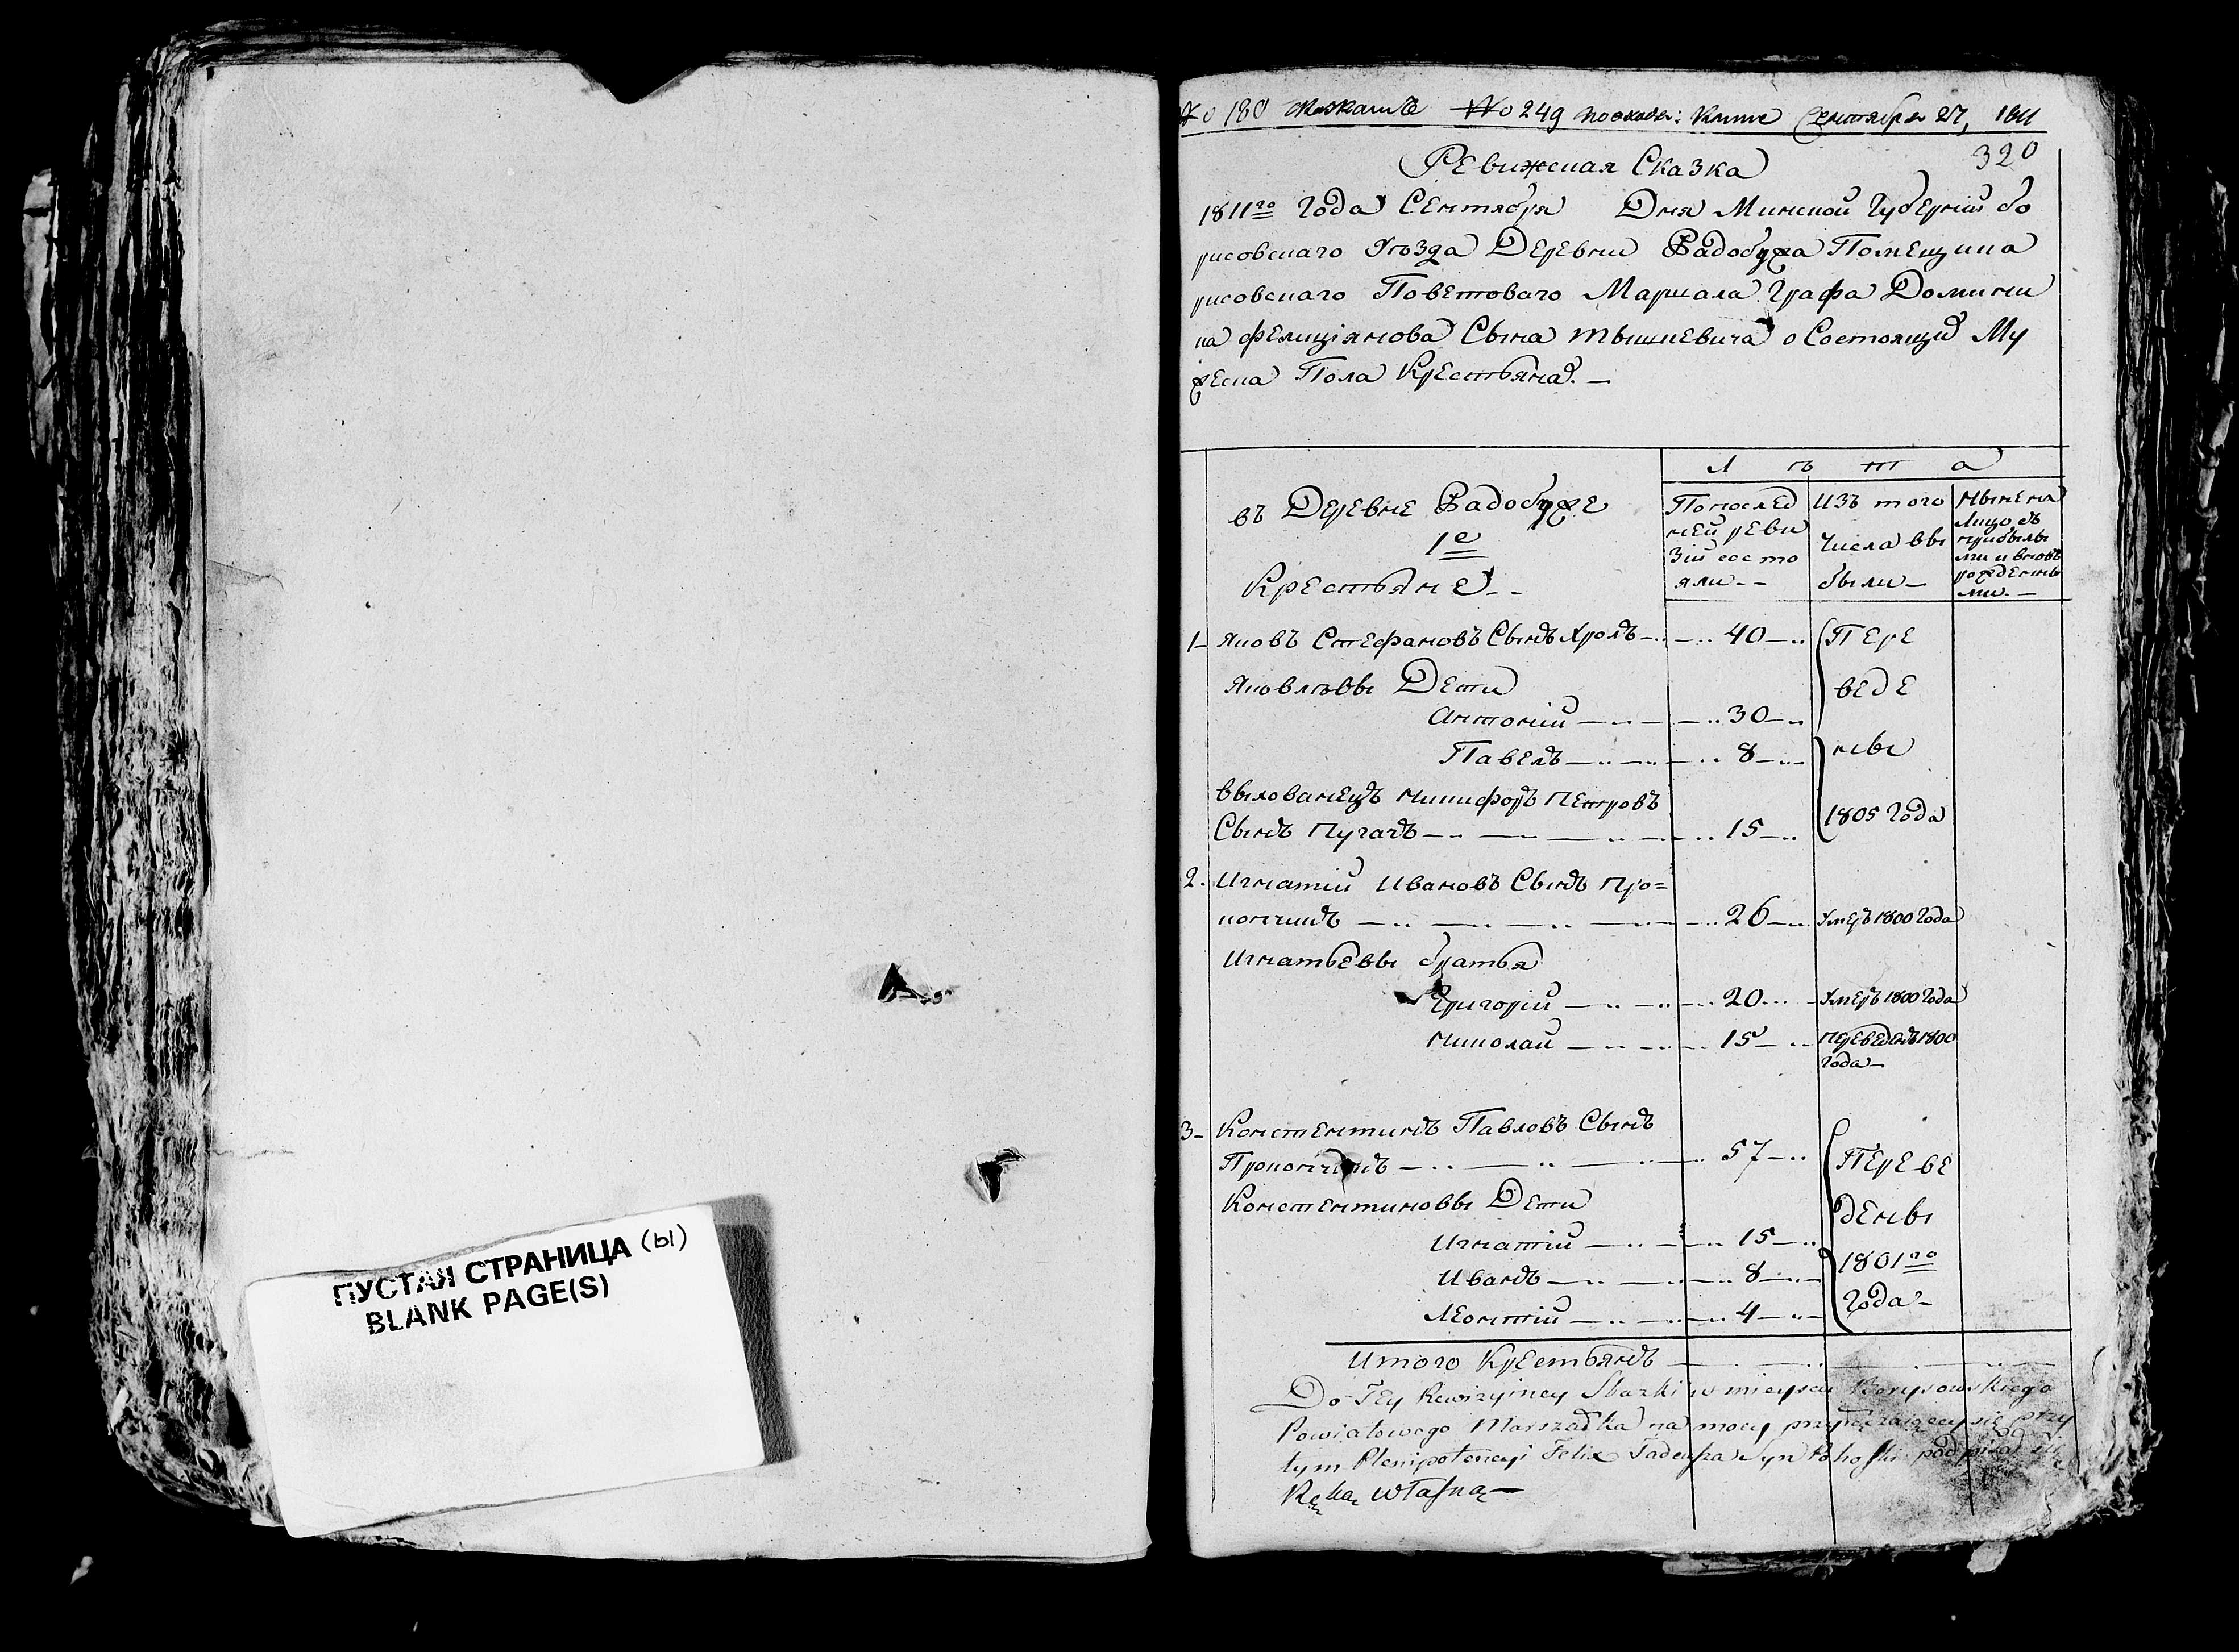 ПУСТАЯ СТРАНИЦА (ы)
BLANK PAGE(S)
№ 180 № 249 по входя: книге Сентября 27, 1811
320
Ревижская Сказка
1811го Года Сентября Дня Минской Губернии Бо
рисовскаго Уезда Деревни Радобужа Помещика
рисовскаго Поветоваго Маршала Графа Домини
ка Фелициянова Сына Тышкевича о Состоящих Му
жеска Пола Крестьянах. —
Л ѣ т а
въ Деревне Радобуже
1е
Крестьяне
Попослед
ней реви
зіи состо
яли
Изъ того
числа вы
были
Ныне на
лицо съ
прибылы
ми и вновь
рожденны
ми
1 Яковъ Стефановъ Сынъ Хролъ 40 Пере
Яковлевы Дети веде
Антоній 30
Павелъ 8 ны
Выхованецъ Никифоръ Петровъ
Сынъ Пугачъ 15 1805 Года
2. Игнатій Ивановъ Сынъ Про=
копчикъ 26 Умеръ 1800 Года
Игнатьевы братья
Григорій 20 Умеръ 1800 Года
Николай 15 Переведенъ 1800
Года
3 Констентинъ Павловъ Сынъ
Прокопчикъ 57 Переве
Констентиновы Дети дены
Игнатій 15
Иванъ 8 1801го
Леонтій 4 Года
Итого Крестьянъ
Do Tey Rewizyiney Skazki w mieyscu Borysowskiego
Powiatowego Marszałka na mocy przyłączaiącey się przy
tym Plenipotencyi Felix Tadeusza Syn podpisał się
Ręką własną —